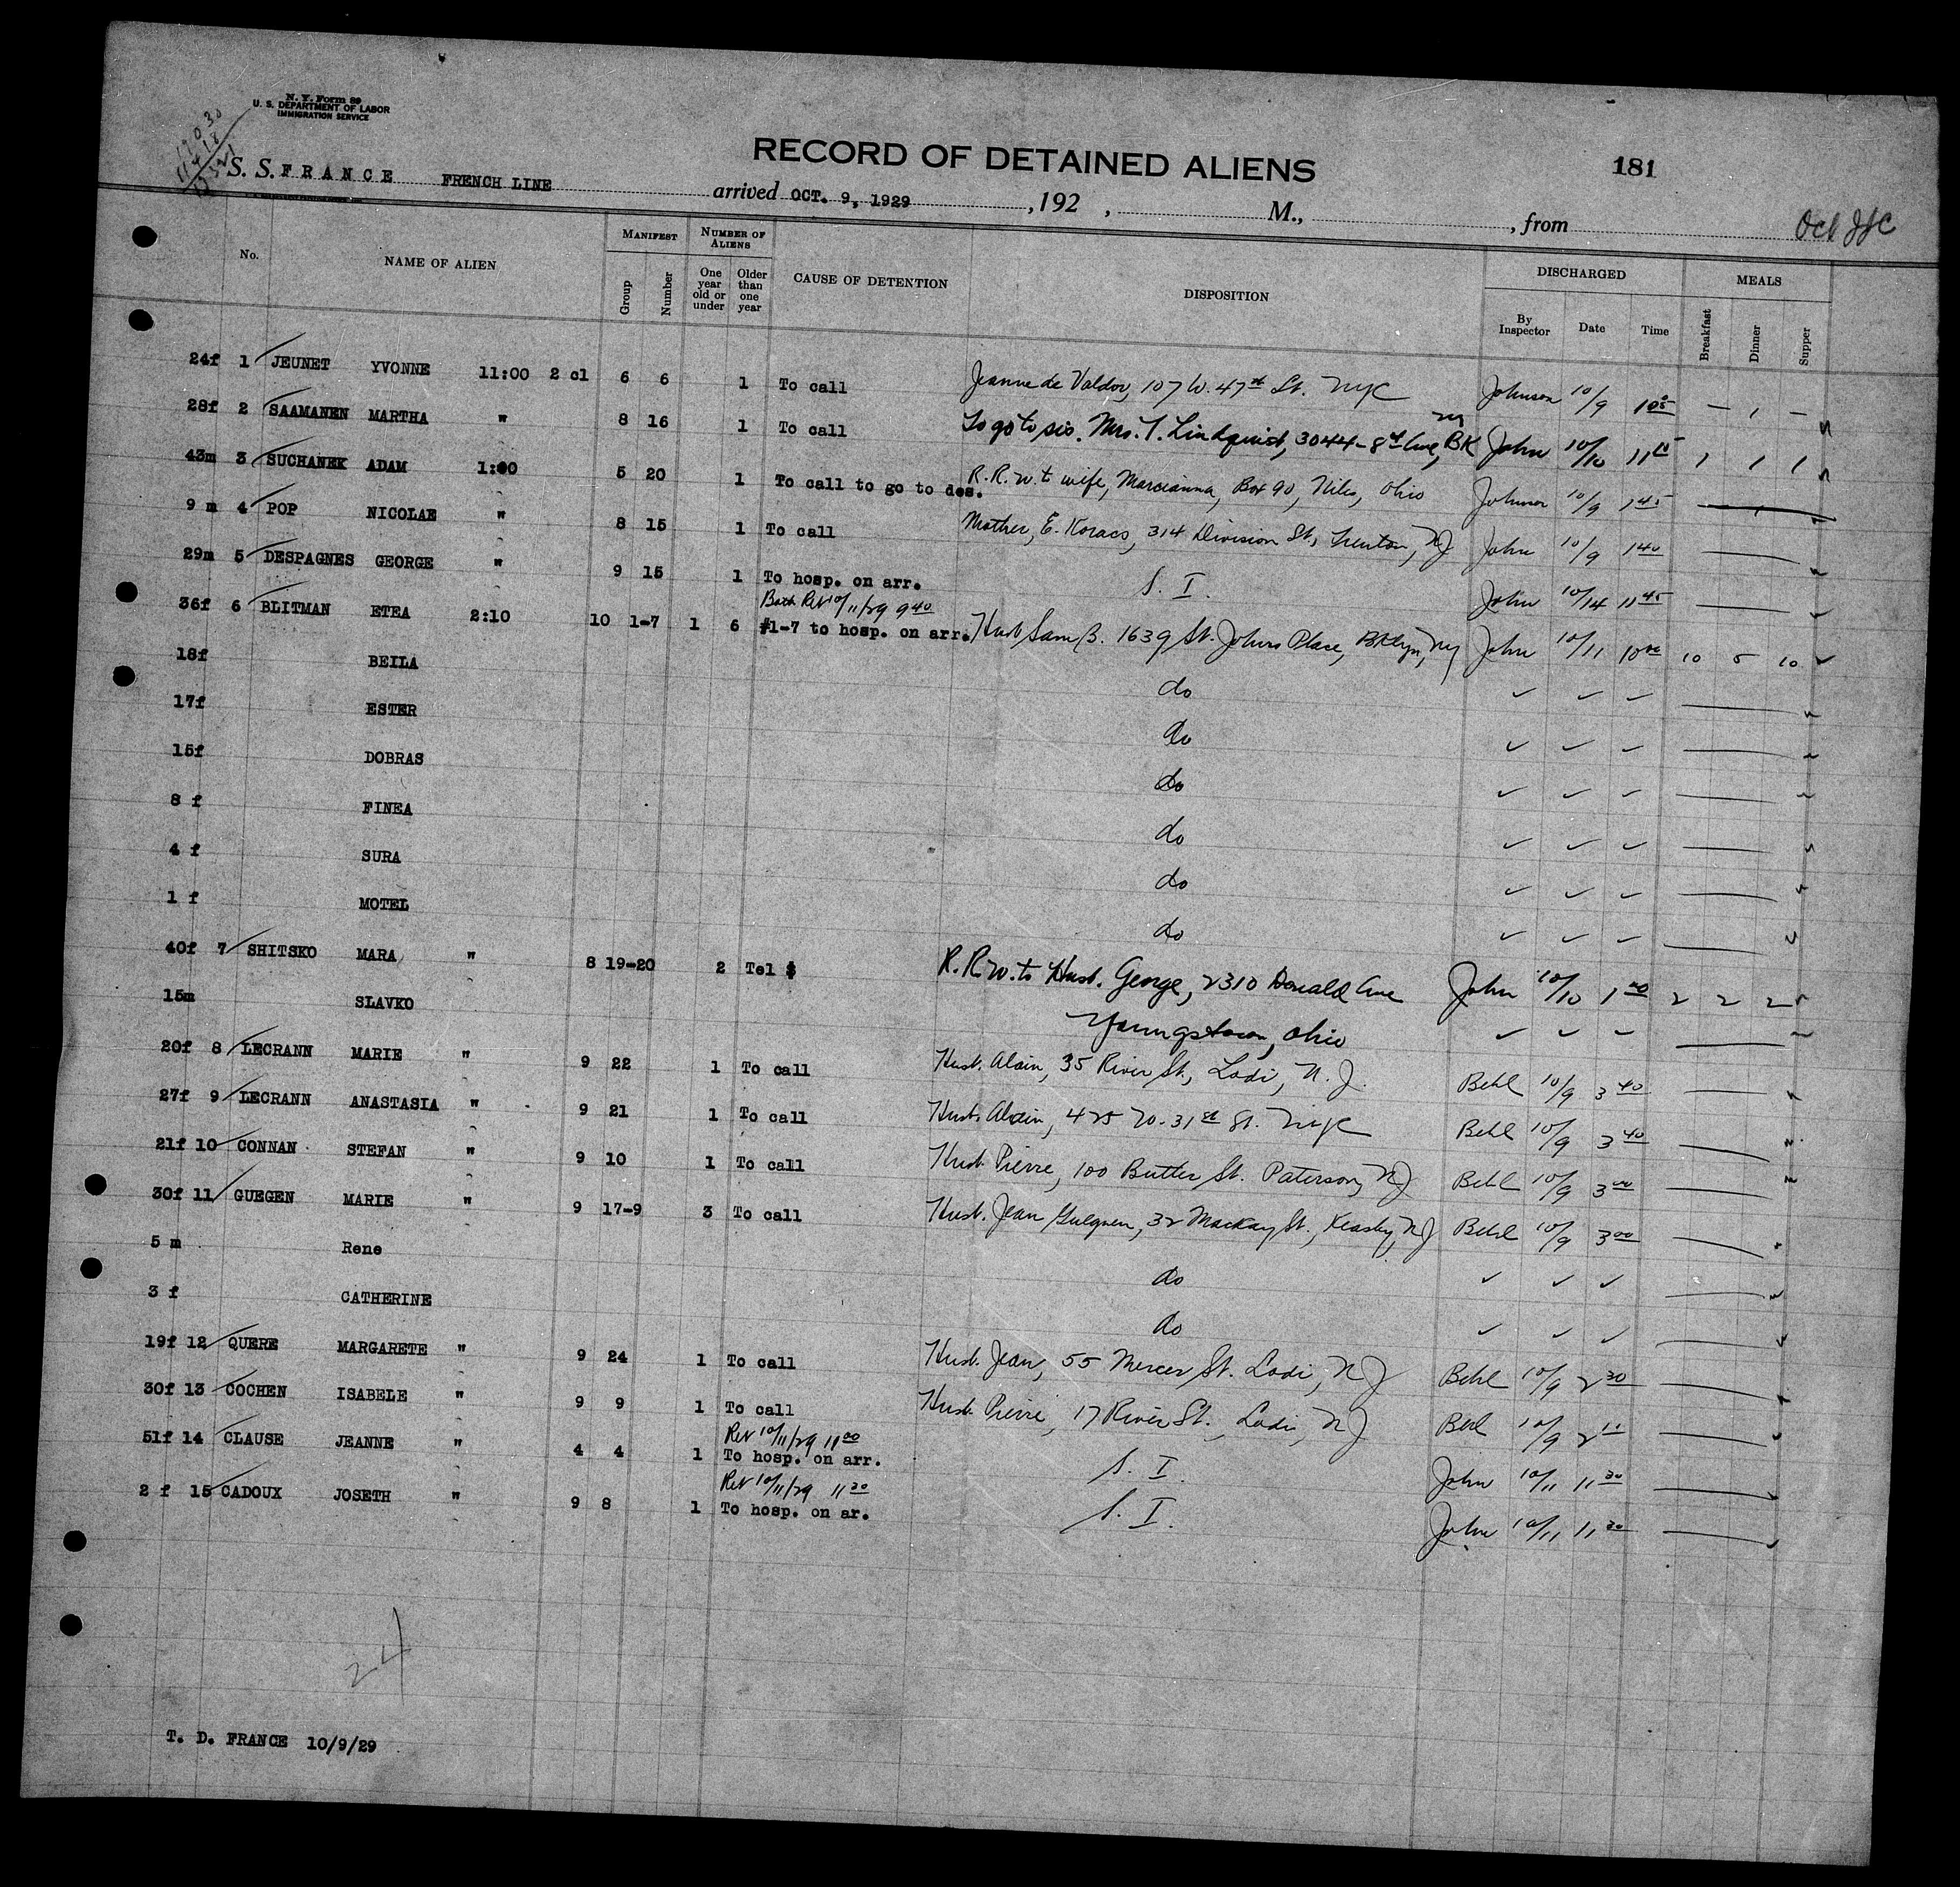 N. Y. Form 89
U. S. DEPARTMENT OF LABOR
IMMIGRATION SERVICE
RECORD OF DETAINED ALIENS 181
S. S. FRANCE FRENCH LINE arrived OCT. 9, 1929 , 192 , M., , from
Oct
No. NAME OF ALIEN MANIFEST NUMBER OF ALIENS CAUSE OF DETENTION DISPOSITION DISCHARGED MEALS
Group Number One year old or under Older than one year By Inspector Date Time Breakfast Dinner Supper
24f 1 JEUNET YVONNE 11:00 2 cl 6 6 1 To call Jeanne de Valdor, 107 W. 47th St. NYC Johnson 10/9
28f 2 SAAMANEN MARTHA " 8 16 1 To call To go to sis. Mrs. T. Lindquist, 3044-8th Ave, BK NY John 10/10 11 15 1 1 1
43m 3 SUCHANEK ADAM 1:00 5 20 1 To call to go to des. R.R.W. to wife, Marcianna, Box 90, Niles, Ohio Johnson 10/9 1 45
9 m 4 POP NICOLAE " 8 15 1 To call Mother, E. Kovacs, 314 Division St., Trenton, NJ John 10/9 1 40
29m 5 DESPAGNES GEORGE " 9 15 1 To hosp. on arr. S. I. John 10/14 11 45
Both Ret 10/11/29 9 40
36f 6 BLITMAN ETEA 2:10 10 1-7 1 6 #1-7 to hosp. on arr. Husb Sam B. 1639 St. Johns Place, Bklyn, NY John 10/11 10 00 10 5 10
18f BEILA do
17f ESTER do
15f DOBRAS do
8 f FINEA do
4 f SURA do
1 f MOTEL do
40f 7 SHITSKO MARA " 8 19-20 2 Tel $ R.R.W. to Husb. George, 2310 Donald Ave John 10/10 1 00 2 2 2
15m SLAVKO Youngstown, Ohio
20f 8 LECRANN MARIE " 9 22 1 To call Husb. Alain, 35 River St., Lodi, N. J. Behl 10/9 3 40
27f 9 LECRANN ANASTASIA " 9 21 1 To call Husb. Alain, 425 W. 31st St. NYC Behl 10/9 3 40
21f 10 CONNAN STEFAN " 9 10 1 To call Husb. Pierre, 100 Butler St. Paterson, NJ Behl 10/9 3 00
30f 11 GUEGEN MARIE " 9 17-9 3 To call Husb. Jean Gueguen, 32 Mackay St., Keasby, NJ Behl 10/9 3 00
5 m Rene do
3 f CATHERINE do
19f 12 QUERE MARGARETE " 9 24 1 To call Husb. Jean, 55 Mercer St. Lodi, NJ Behl 10/9 2 30
30f 13 COCHEN ISABELE " 9 9 1 To call Husb. Pierre, 17 River St., Lodi, NJ Behl 10/9
Ret 10/11/29 11 00
51f 14 CLAUSE JEANNE " 4 4 1 To hosp. on arr. S. I. John 10/11 11 30
Ret 10/11/29 11 30
2 f 15 CADOUX JOSETH " 9 8 1 To hosp. on ar. S. I. John 10/11 11 30
24
T. D. FRANCE 10/9/29